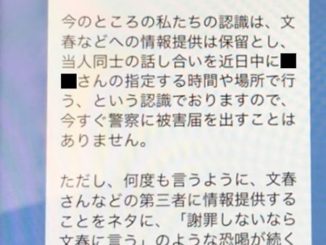 今のところの私たちの認識は、文
春などへの情報提供は保留とし、
当人同士の話し合いを近日中に
さんの指定する時間や場所で行
う、という認識でおりますので、
今すぐ警察に被害届を出すことは
ありません。
ただし、何度も言うように、文春
さんなどの第三者に情報提供する
ことをネタに、「謝罪しないなら
文春に言う」のような恐喝が続く